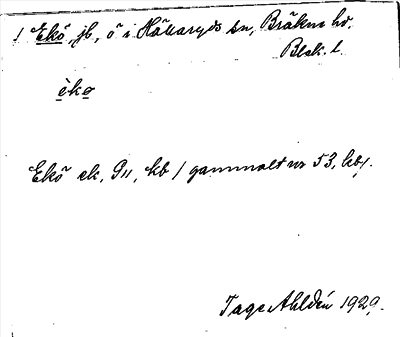 ! Ekö, jb, ö i Hällaryds sn, Bräkne hd.
Blek. l.
èko
Ekö ek, G11, kb / gammalt nr 53, kb/.
Tage Ahldén 1929.